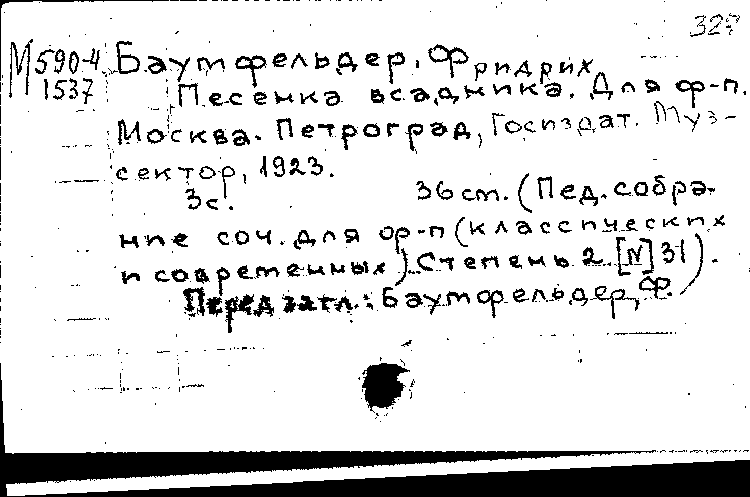 М 590-4 Баумфельдер, Фридрих
1537 Песенка всадника. Для ф-п.
Москва. Петроград, Госиздат. Муз-
сектор, 1923.
3с. 36 cm. (Пед. собра-
ние соч. для ф-п (классических
и современных). Степень 2. [N] 31).
Перед загл.: Баумфельдер, Ф.